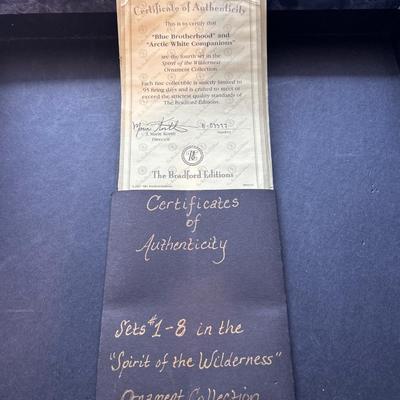 Certificate of Authenticity
This is to certify that
"Blue Brotherhood" and
"Arctic White Companions"
are the fourth set in the
Spirit of the Wilderness
Ornament Collection
Each fine collectible is strictly limited to
95 firing days and is crafted to meet or
exceed the strictest quality standards of
The Bradford Editions.
J. Marie Korth
Director
Number
The Bradford Editions
Certificates
of
Authenticity
Sets #1-8 in the
"Spirit of the Wilderness"
Ornament Collection